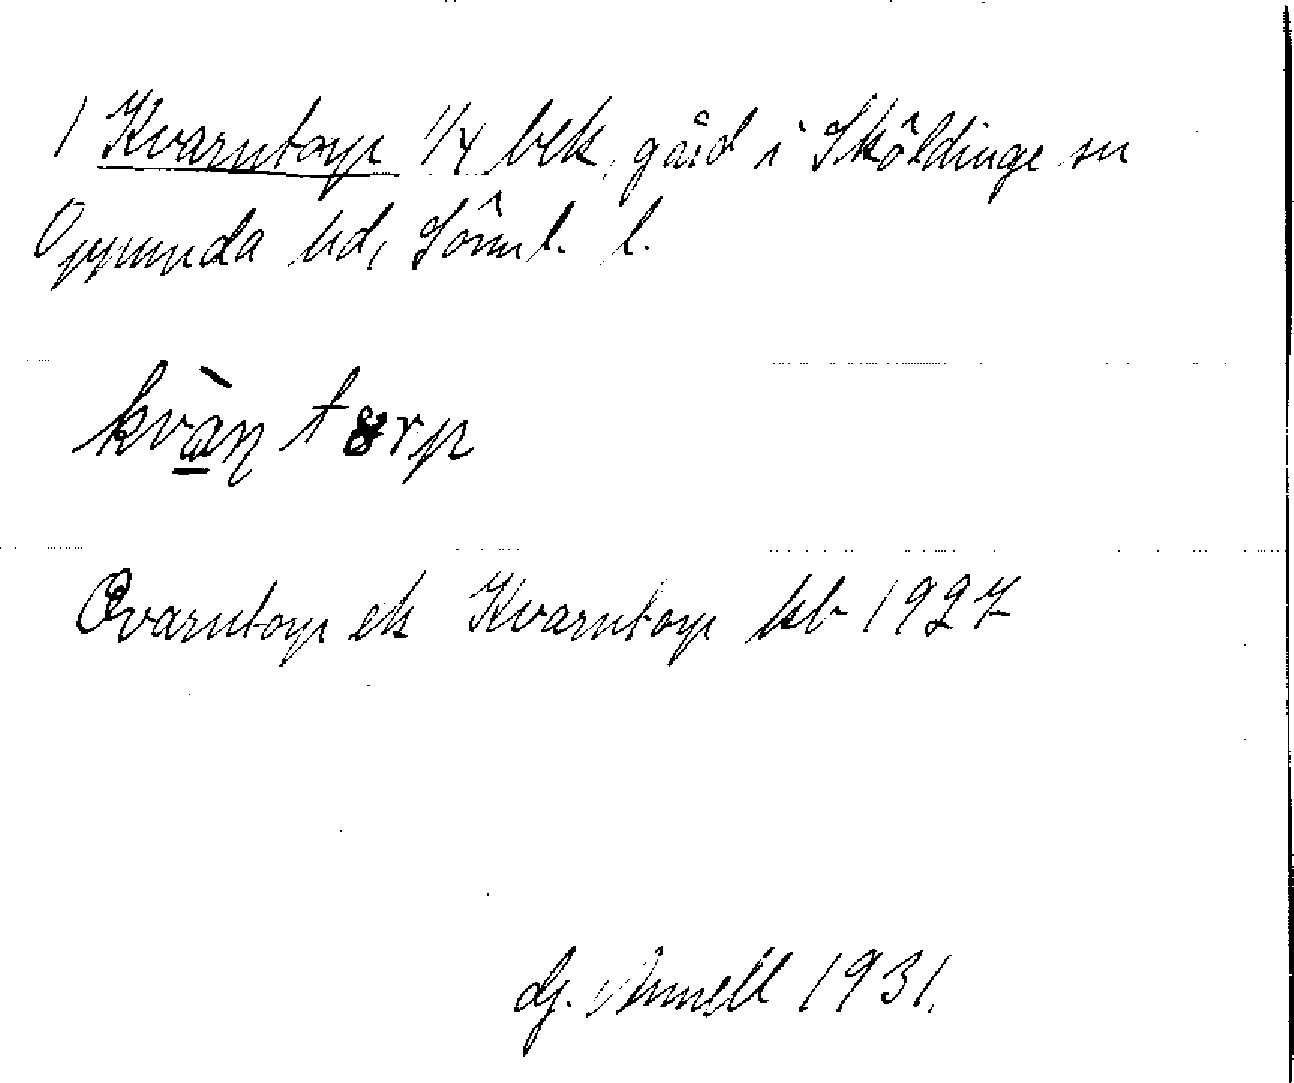 1 Kvarntorp 1/4 bek, gård i Sköldinge sn
Oppunda hd, Sörml. l.
kvàn torp
Qvarntorp ek Kvarntorp kb 1927
dj. Annell 1931.